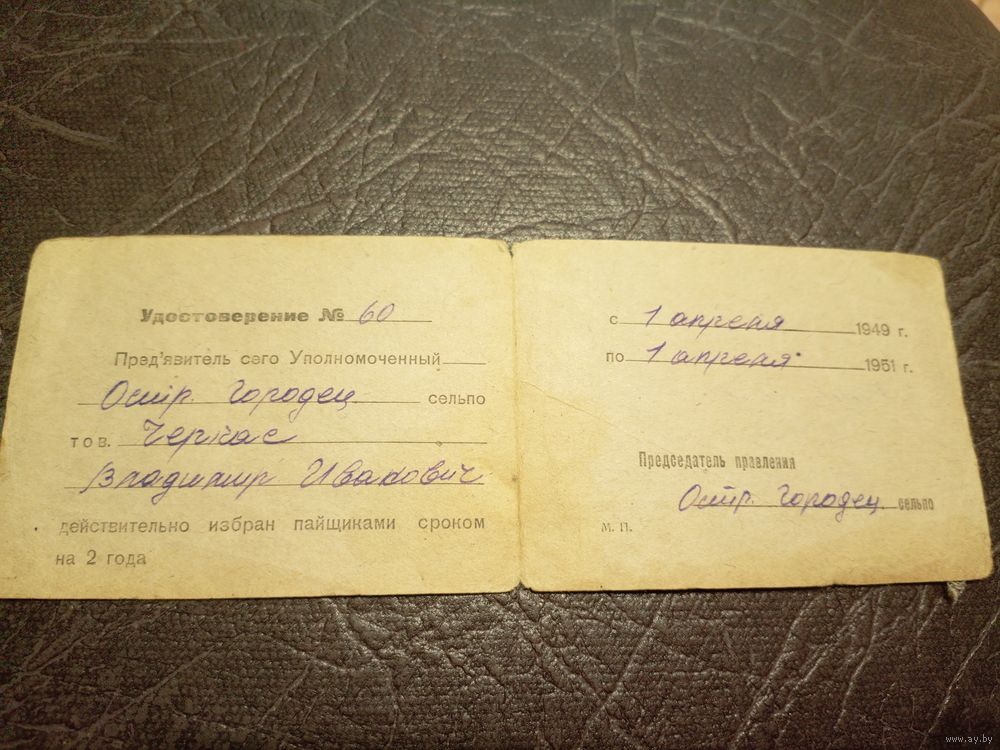 Удостоверение № 60
Пред'явитель сего Уполномоченный
Остр. Городец сельпо
тов. Черкас
Владимир Иванович
действительно избран пайщиками сроком
на 2 года
с 1 апреля 1949 г.
по 1 апреля 1951 г.
Председатель правления
Остр. Городец сельпо
М. П.
www.ay.by